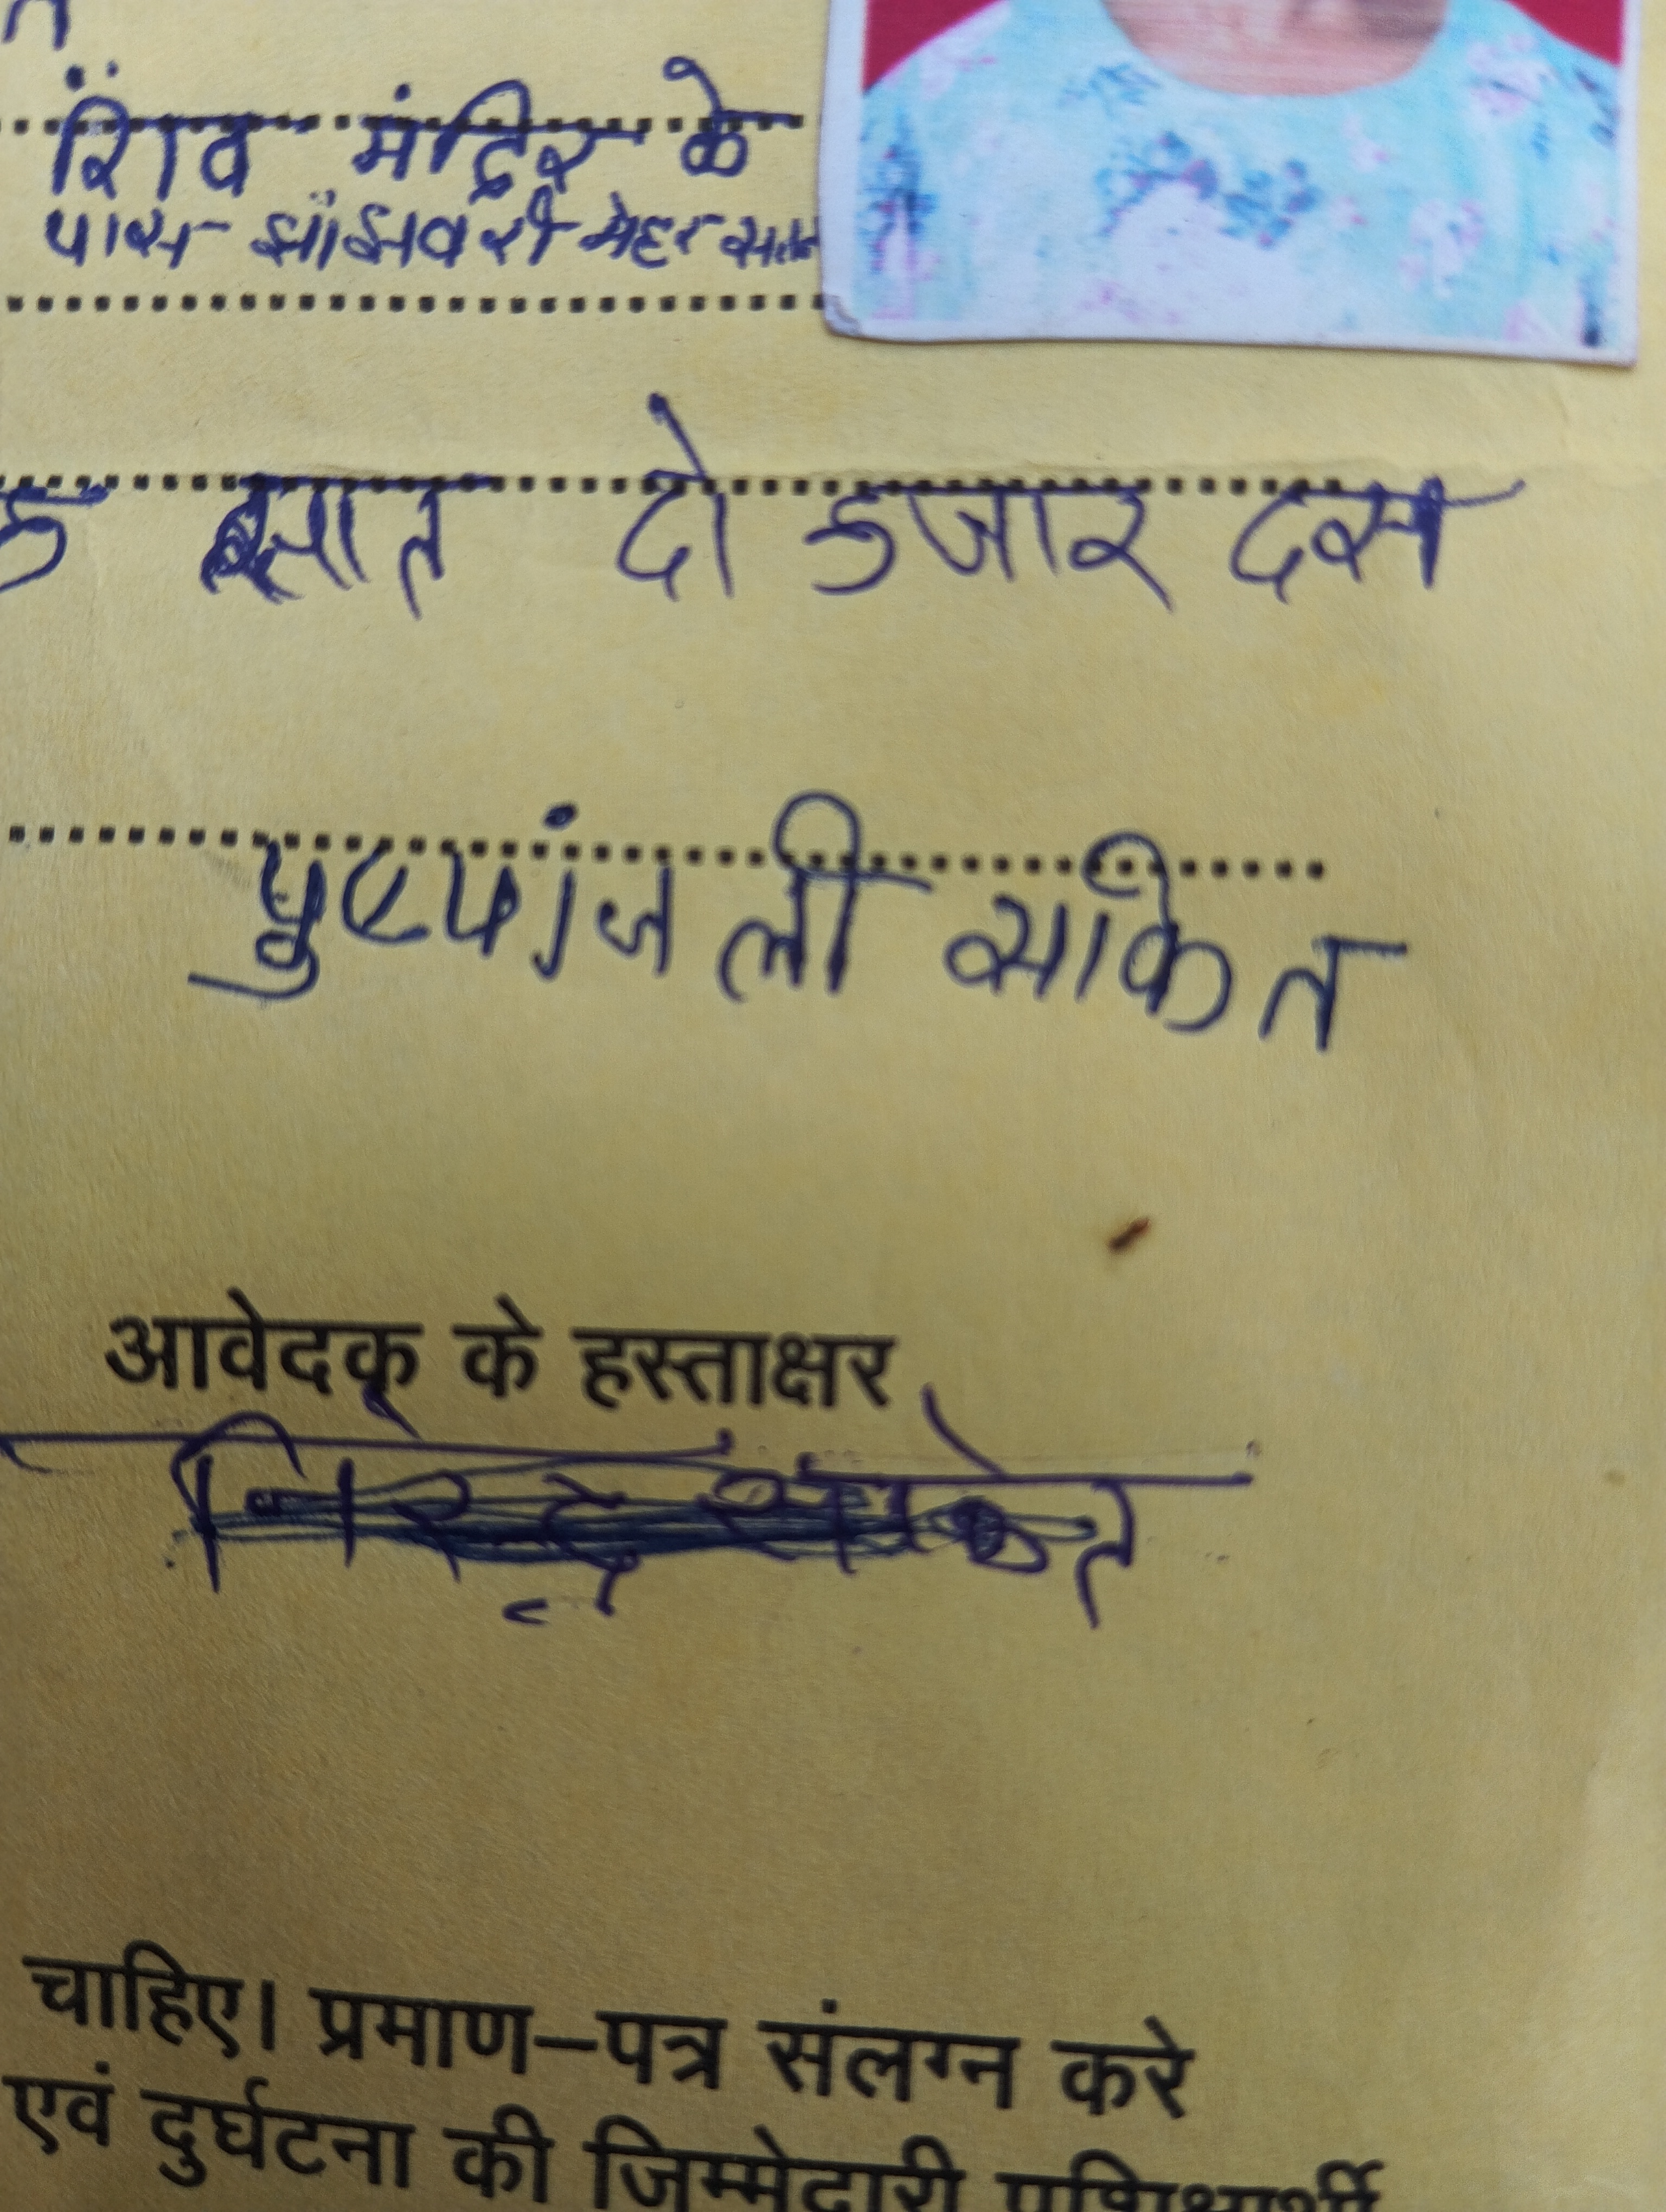 त
शिव मंदिर के
पास झांझवरी मेहर
सात दो हजार दस
पुष्पांजली साकेत
आवेदक के हस्ताक्षर
साकेत
चाहिए। प्रमाण–पत्र संलग्न करे
एवं दुर्घटना की जिम्मेदारी प्रशिक्षार्थी